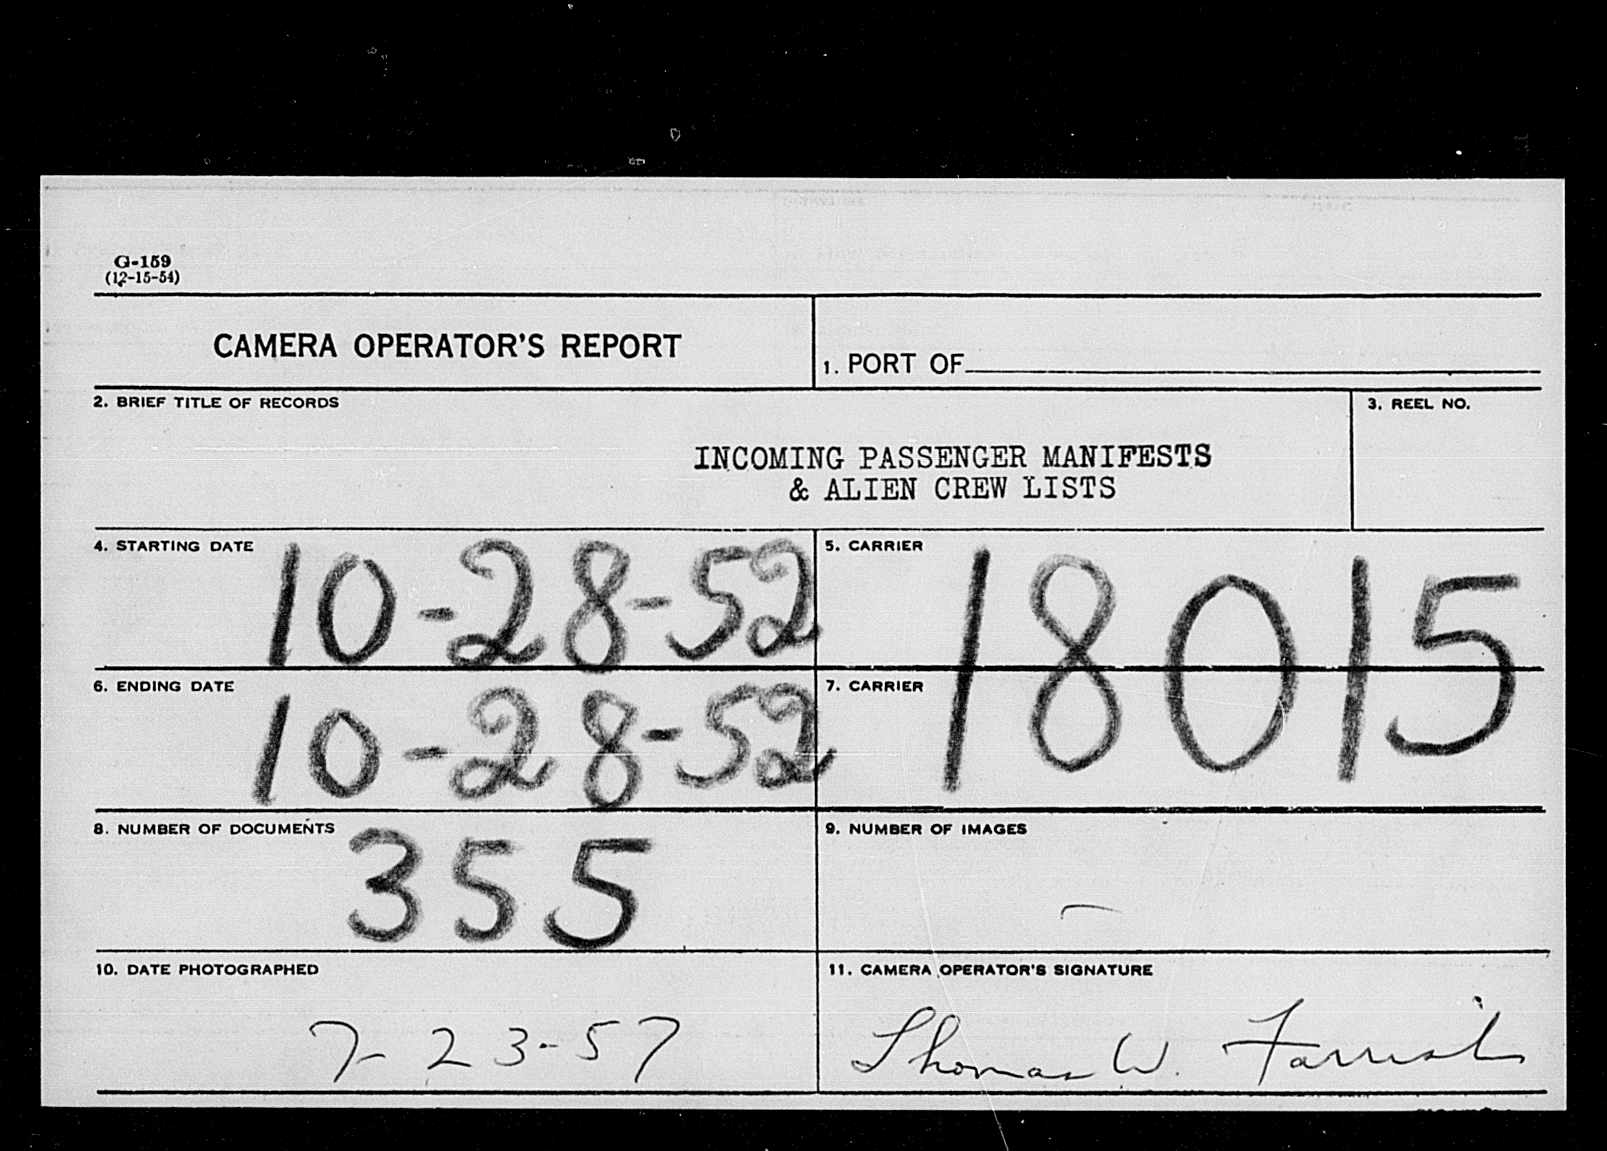 G-159
(12-15-54)
CAMERA OPERATOR'S REPORT
1. PORT OF
2. BRIEF TITLE OF RECORDS
3. REEL NO.
INCOMING PASSENGER MANIFESTS
& ALIEN CREW LISTS
4. STARTING DATE
10-28-52
5. CARRIER
18015
6. ENDING DATE
10-28-52
7. CARRIER
8. NUMBER OF DOCUMENTS
355
9. NUMBER OF IMAGES
10. DATE PHOTOGRAPHED
7-23-57
11. CAMERA OPERATOR'S SIGNATURE
Thomas W.